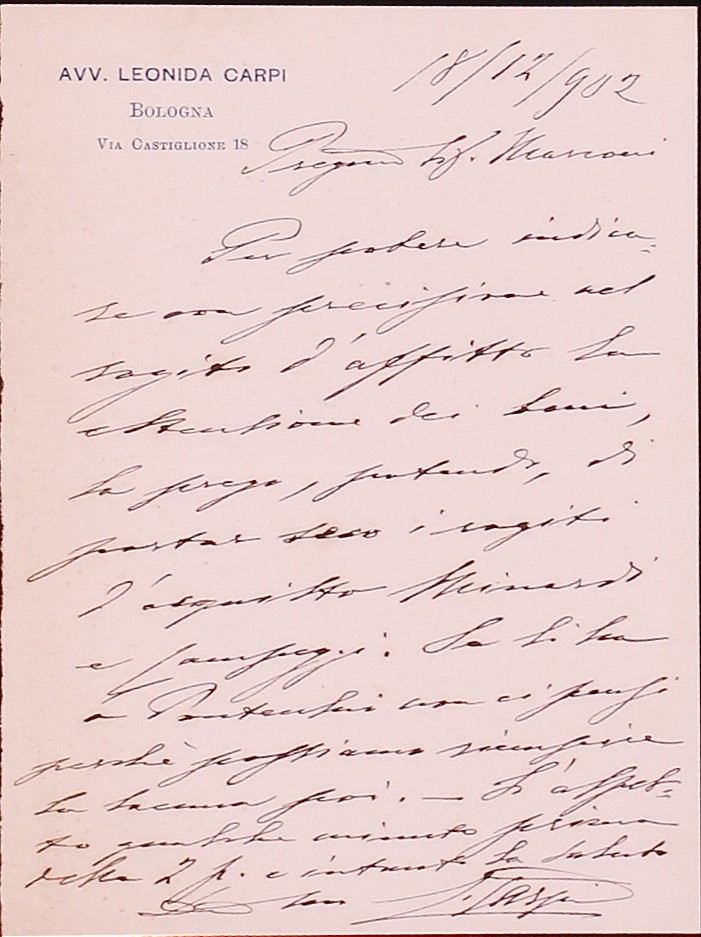 AVV. LEONIDA CARPI
BOLOGNA
VIA CASTIGLIONE 18
18/12/902
Sig. Marconi
Per potere indica=
re con precisione nel
rogito d'affitto la
estensione dei beni,
la prego, potendo, di
portar seco i rogiti
d'acquisto Minardi
e Campeggi. Se li ha
a Pontecchio non ci pensi
perchè possiamo riempire
la lacuna poi. — L'aspet=
to qualche minuto prima
della 2 p. e intanto la saluto
L. Carpi